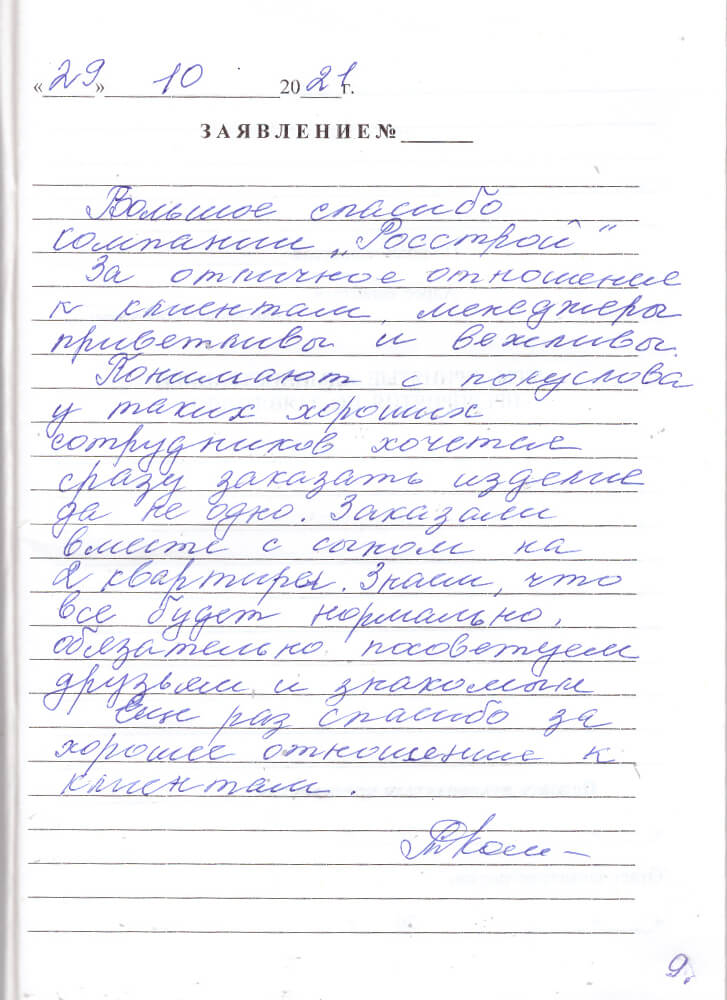 «29» 10 2021 г.
ЗАЯВЛЕНИЕ №
Большое спасибо
компании „Росстрой“
За отличное отношение
к клиентам, менеджеры
приветливы и вежливы.
Понимают с полуслова
у таких хороших
сотрудников хочется
сразу заказать изделие
да не одно. Заказали
вместе с сыном на
2 квартиры. Знаем, что
все будет нормально,
обязательно посоветуем
друзьям и знакомым
Еще раз спасибо за
хорошее отношение к
клиентам.
9.